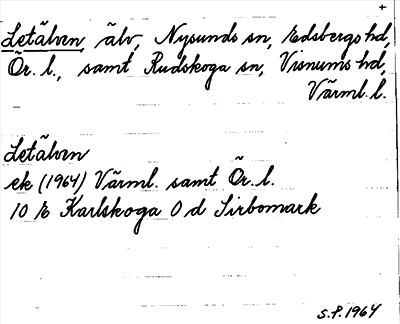 +
Letälven, älv, Nysunds sn, Edsbergs hd,
Ör. l., samt Rudskoga sn, Visnums hd,
Värml. l.
Letälven
ek (1964) Värml. samt Ör. l.
10 E Karlskoga O d Sirbomark
S.P. 1964